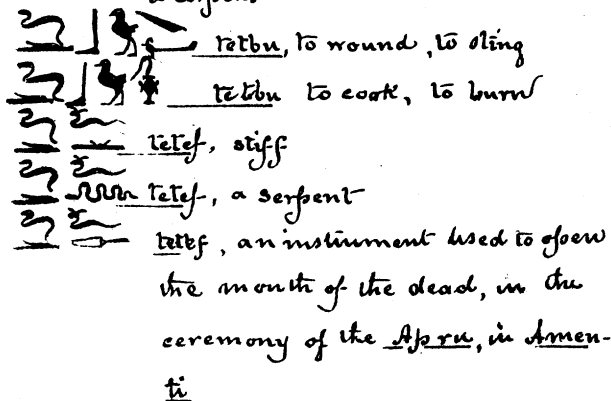 tetbu, to wound, to sting
tetbu to cook, to burn
tetef, stiff
tetef, a serpent
tetef, an instrument used to open
the mouth of the dead, in the
ceremony of the Apru, in Amen-
ti